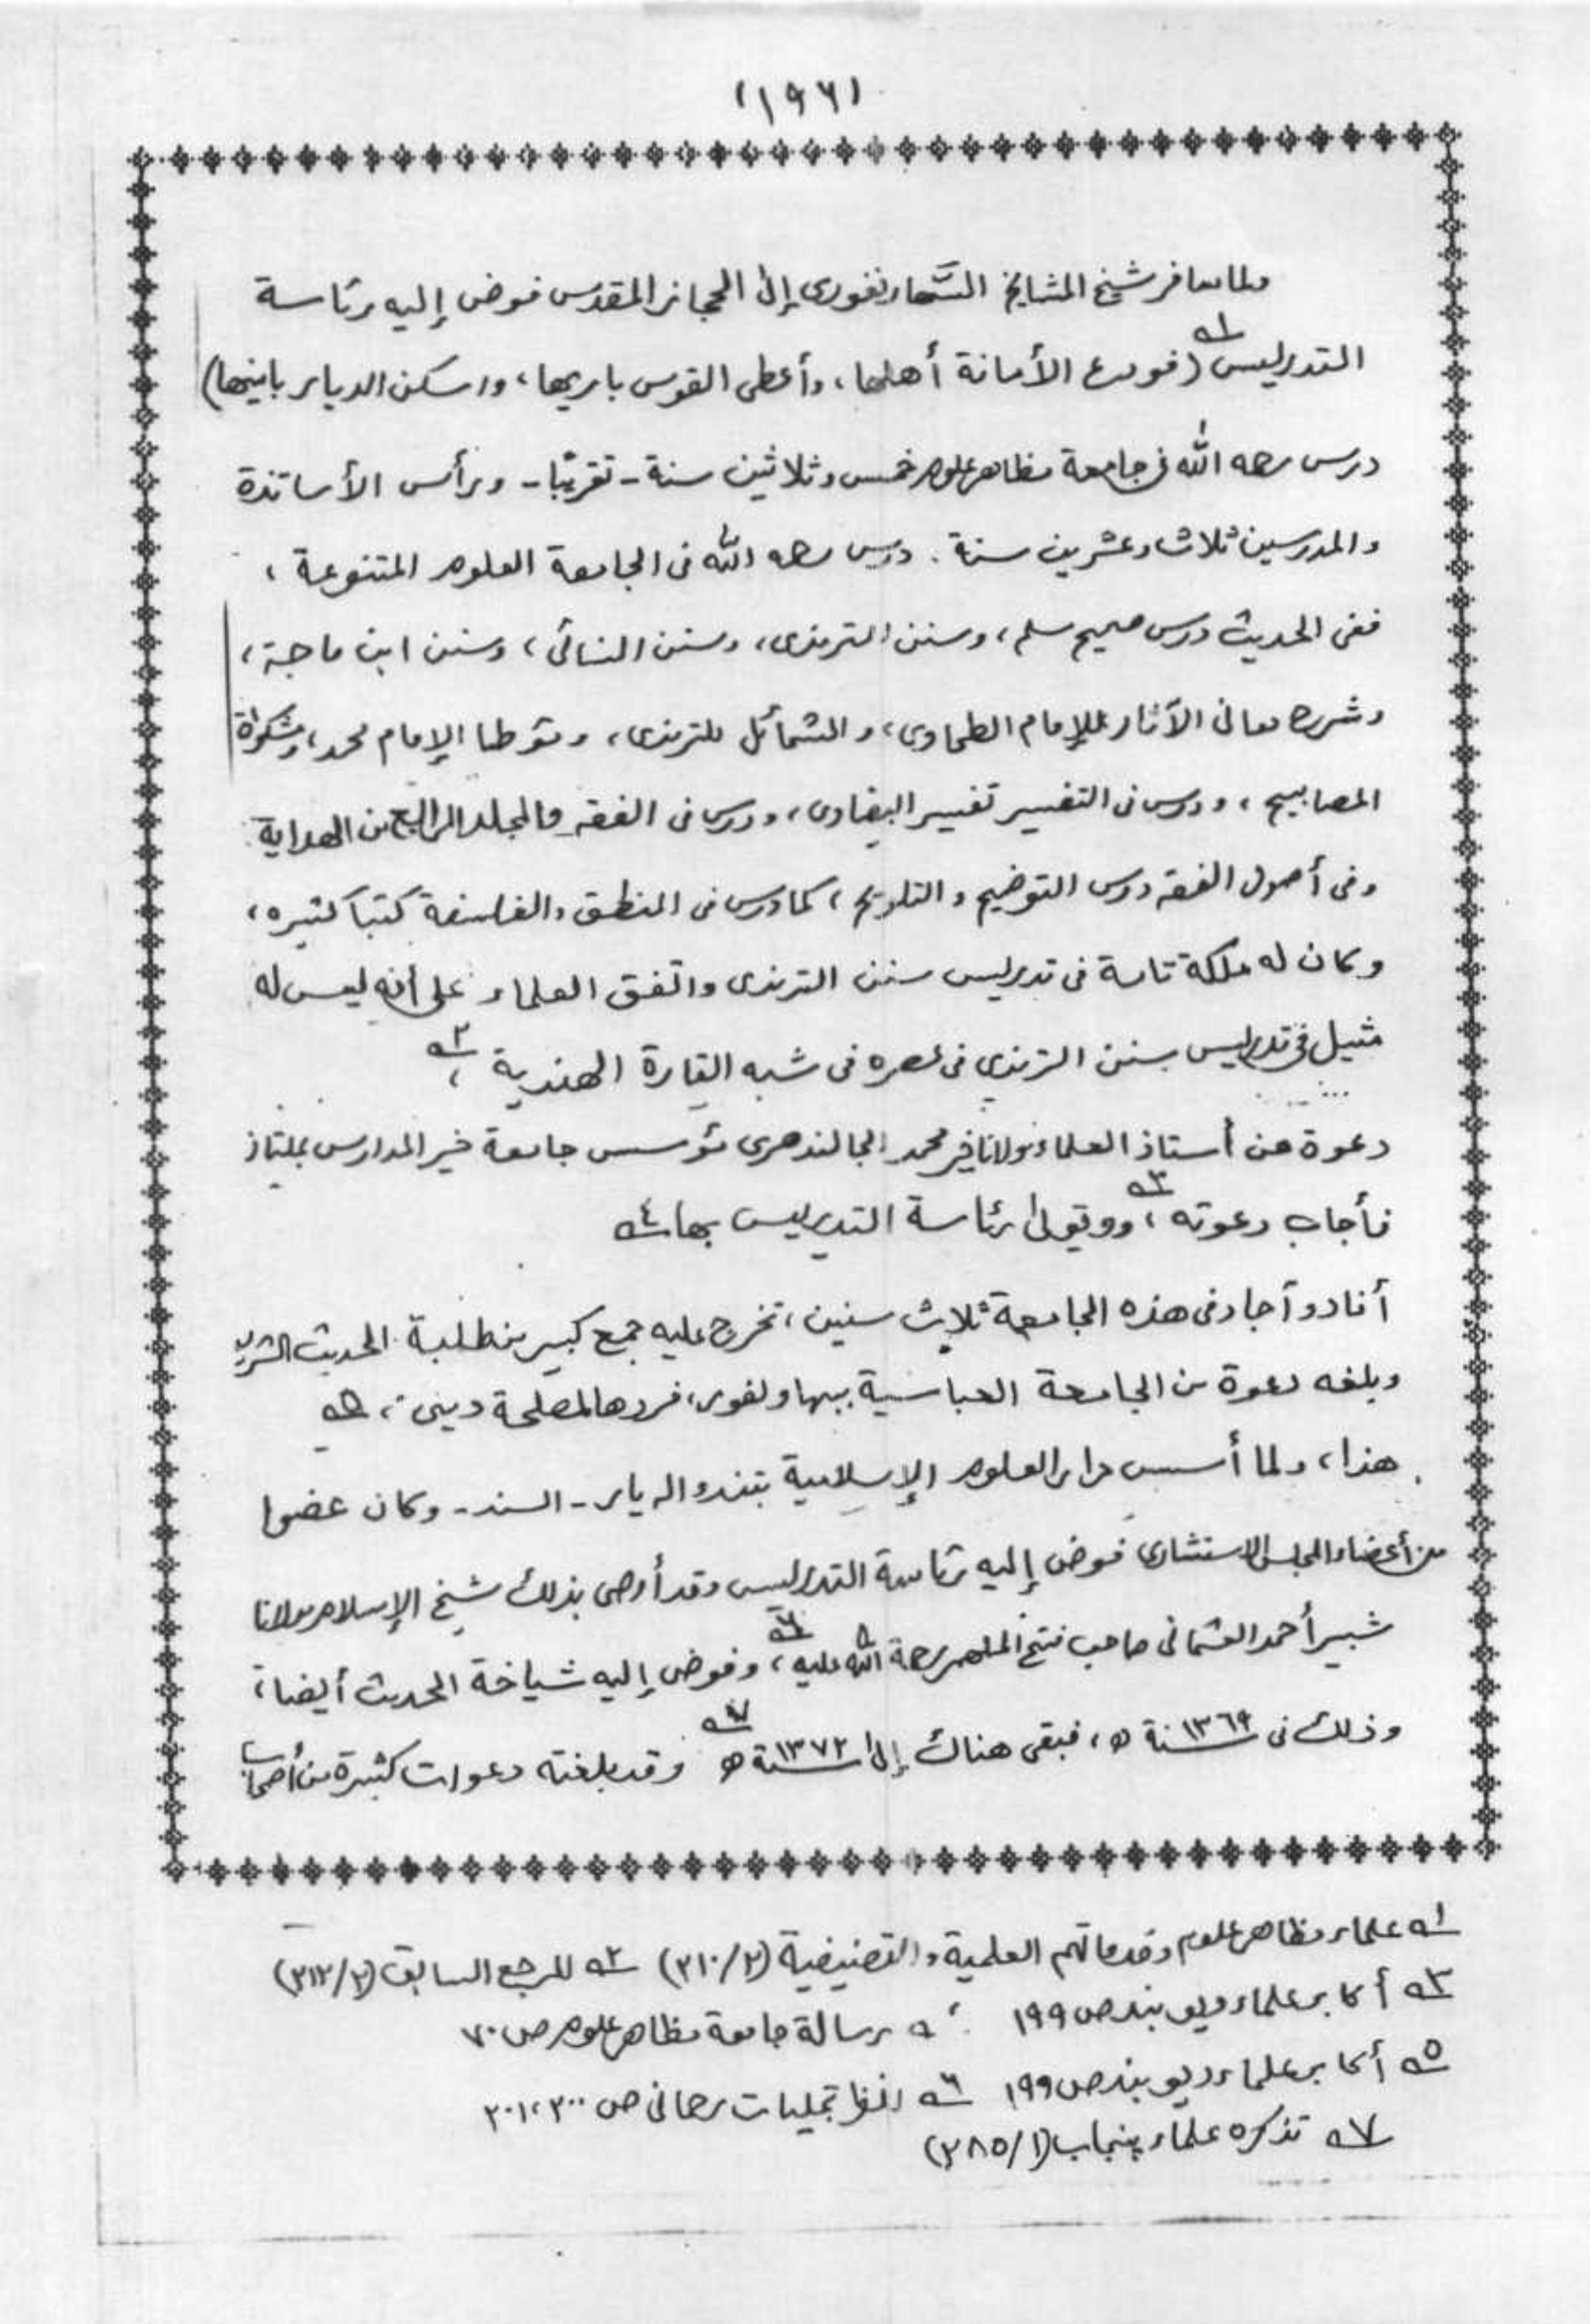 (١٩٦)
ولما سافر شيخ المشايخ السَّهارنفورى إلى الحجاز المقدس فوض إليه رئاسة
التدريس ١ـه (فودع الأمانة أهلها، وأعطى القوس باريها، واسكن الديار بانيها)
درس رحمه الله فى جامعة مظاهر علوم خمس وثلاثين سنة - تقريبًا - ورأس الأساتذة
والمدرسين ثلاث وعشرين سنة . درس رحمه الله فى الجامعة العلوم المتنوعة ،
ففى الحديث درس صحيح مسلم، وسنن الترمذى، وسنن النسائى، وسنن ابن ماجة،
وشرح معانى الآثار للإمام الطحاوى، والشمائل للترمذى، ومؤطا الإمام محمد، ومشكواة
المصابيح ، ودرس فى التفسير تفسير البيضاوى، ودرس فى الفقه والمجلد الرابع من الهداية
وفى أصول الفقه درس التوضيح والتلويح ، كما درس فى المنطق والفلسفة كتبا كثيره ،
وكان له ملكة تامة فى تدريس سنن الترمذى واتفق العلماء على أنه ليس له
مثيل فى تدريس سنن الترمذى فى عصره فى شبه القارة الهندية ، ٢ـه
دعوة من أستاذ العلماء مولانا خير محمد الجالندهرى مؤسس جامعة خير المدارس بملتان
فأجاب دعوته ٣ـه ، ووتولى رئاسة التدريس بها ٤ـه
أفاد وآجاد فى هذه الجامعة ثلاث سنين ، تخرج عليه جمع كبير من طلبة الحديث الشريف
وبلغه دعوة من الجامعة العباسية ببهاولفور، فردها لمصلحة دينى ، ٥ـه
هذا، ولما أسس دار العلوم الإسلامية بتندو اله يار - السند - وكان عضوا
من أعضاء المجلس الاستشارى فوض إليه رئاسة التدريس وقد أوصى بذلك شيخ الإسلام مولانا
شبير أحمد العثمانى صاحب فتح الملهم رحمة الله عليه ٦ـه ، وفوض إليه شياخة الحديث أيضا ،
وذلك فى سنة ١٣٦٩ ھ ، فبقى هناك إلى سنة ١٣٧٢ ھ ٧ـه وقد بلغته دعوات كثيرة من أصحاب
١ـه علماء مظاهر علوم وخدماتهم العلمية والتصنيفية (٢/٣١٠) ٢ـه المرجع السابق (٢/٣١٢)
٣ـه أكابر علماء ديو بند ص ١٩٩ ٤ـه رسالة جامعة مظاهر علوم ص ٧٠
٥ـه أكابر علماء ديو بند ص ١٩٩ ٦ـه انظر تجليات رحمانى ص ٢٠٠، ٢٠١
٧ـه تذكره علماء پنجاب (١/٢٨٥)